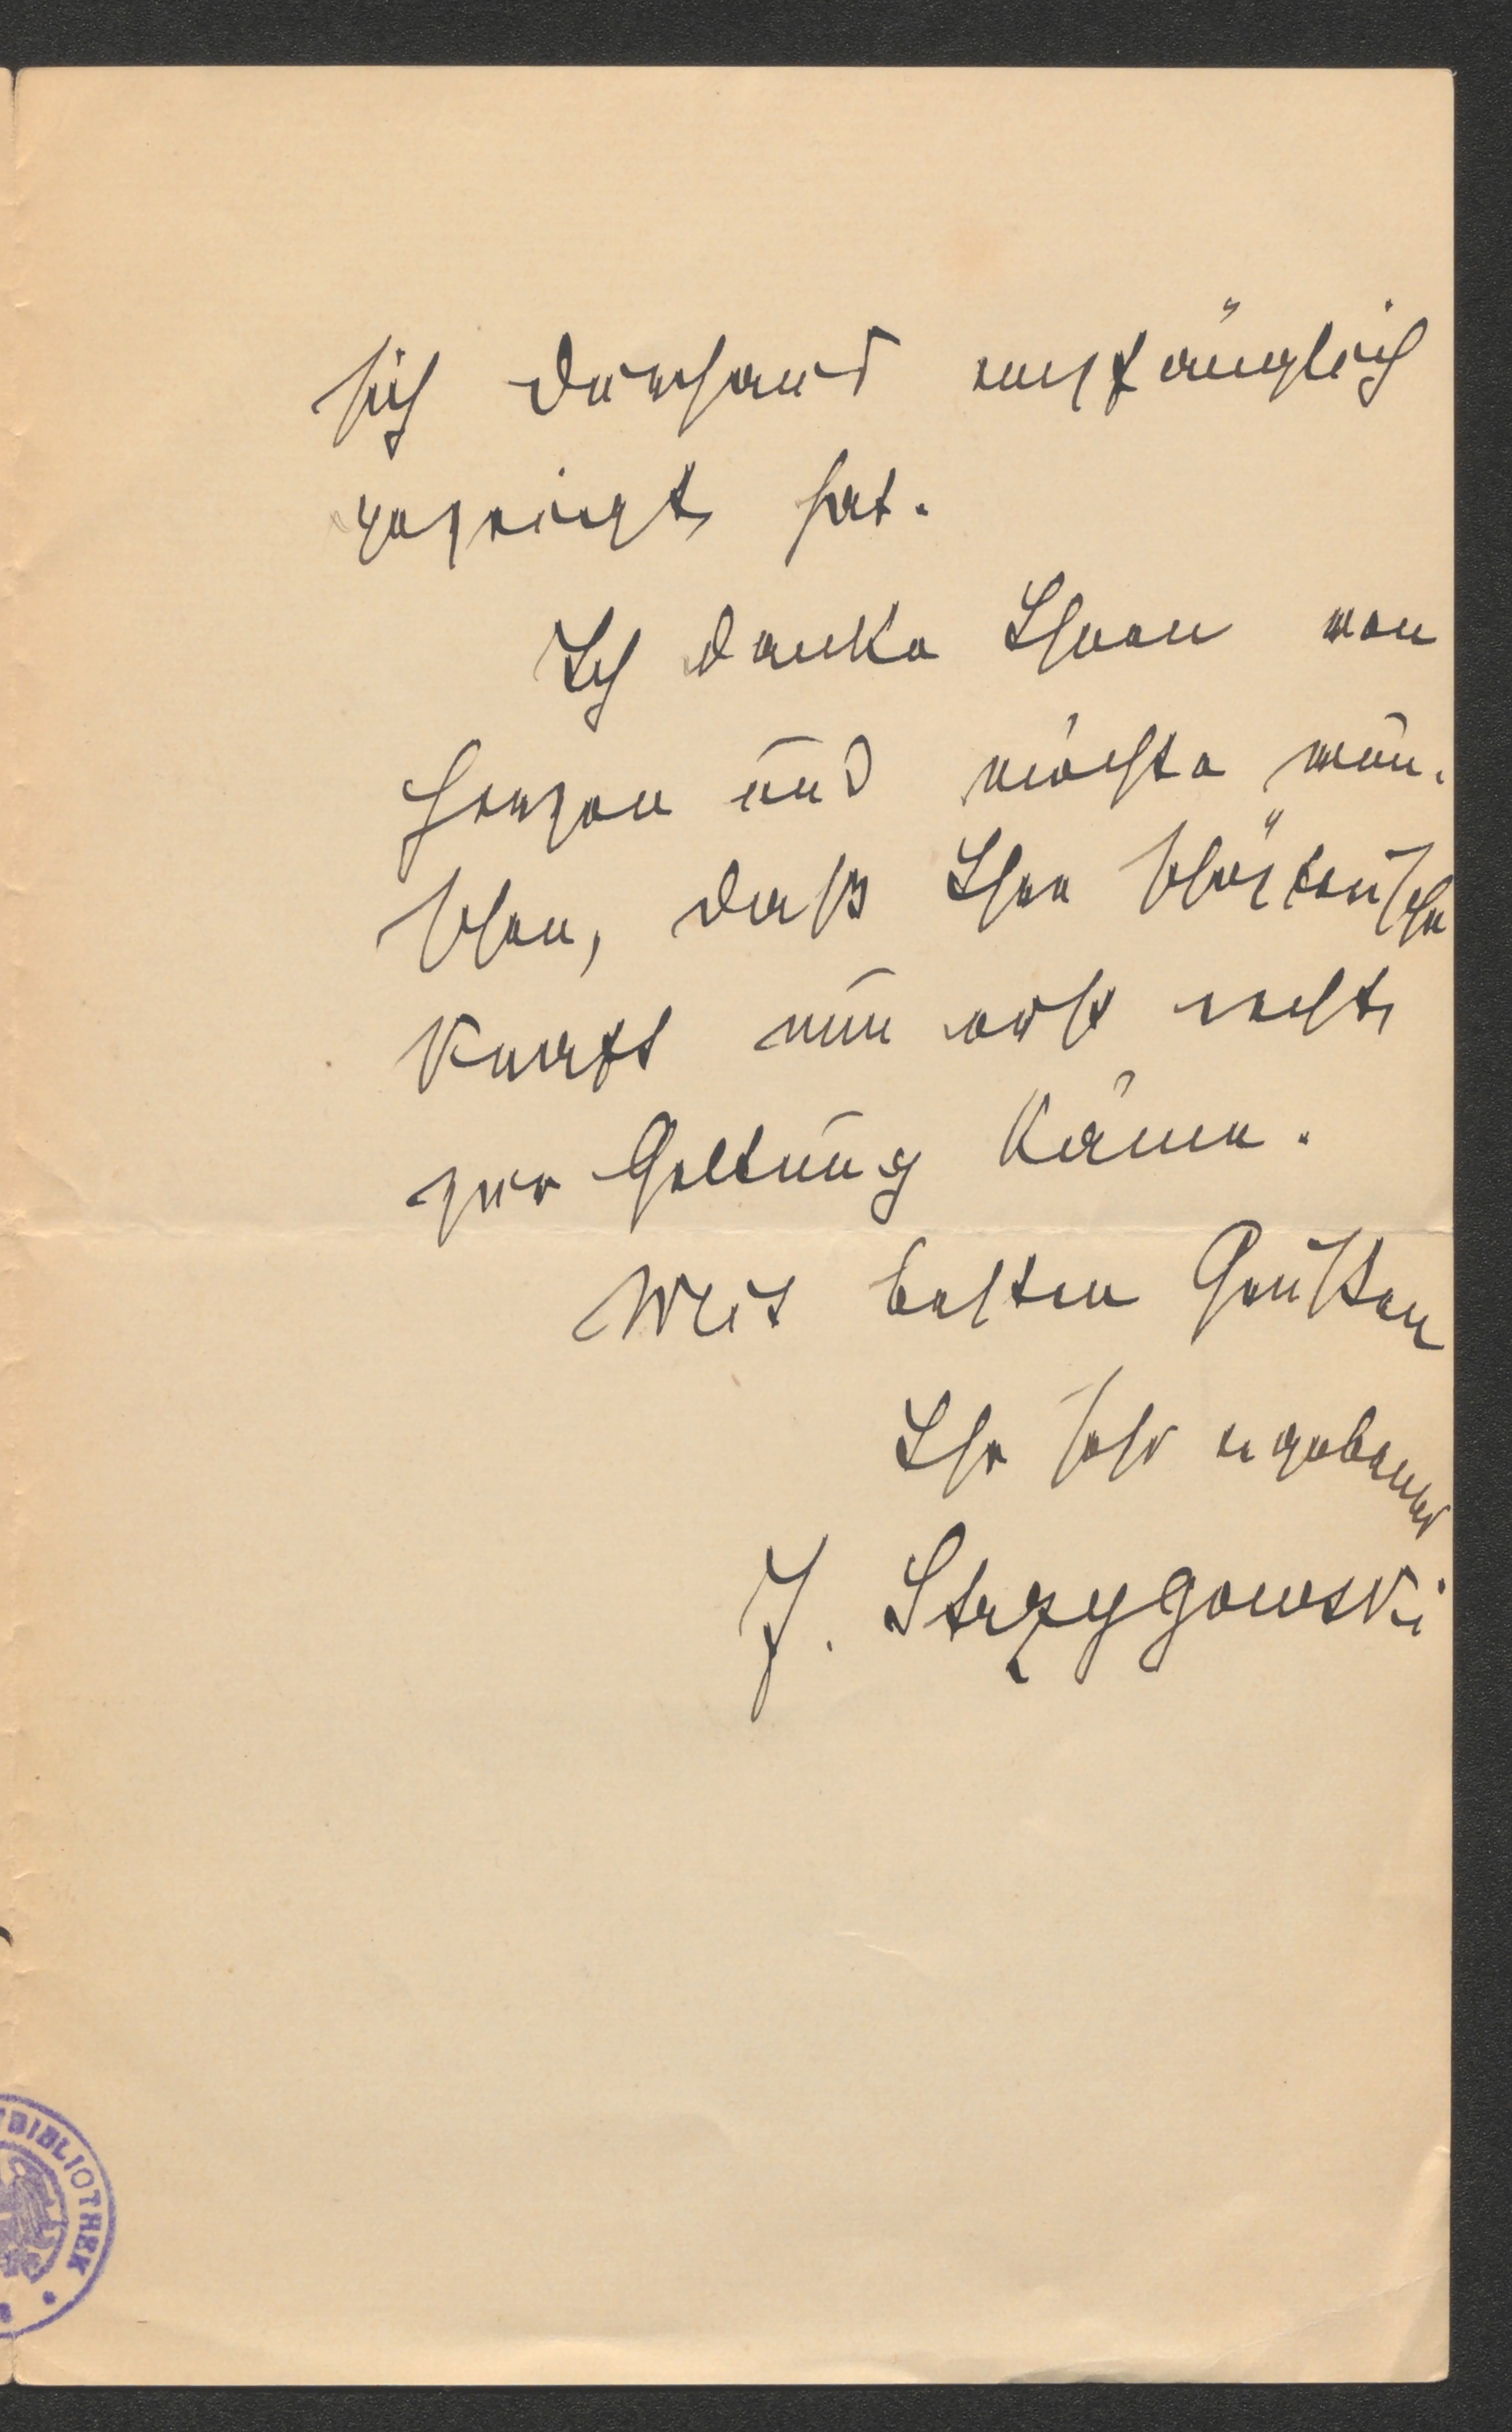 sich dauernd empfänglich
gezeigt hat.
Ich danke Ihnen von
Herzen und möchte wün-
schen, daß Ihre schöpferische
Kraft nun erst recht
zur Geltung käme.
Mit besten Grüßen
Ihr sehr ergebener
J. Strzygowski
BIBLIOTHEK